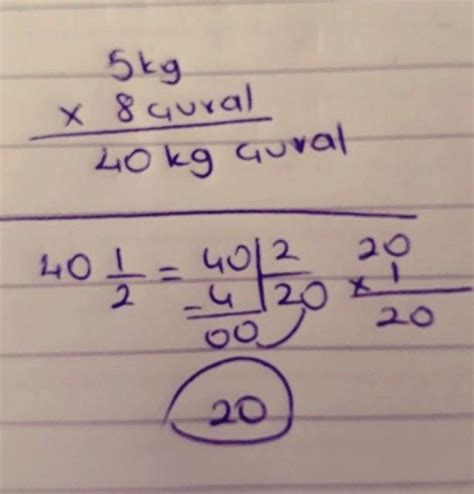 5kg
x 8 çuval
40 kg çuval
40 1/2 = 40 | 2 20
= 4 | 20 x 1
00 20
20